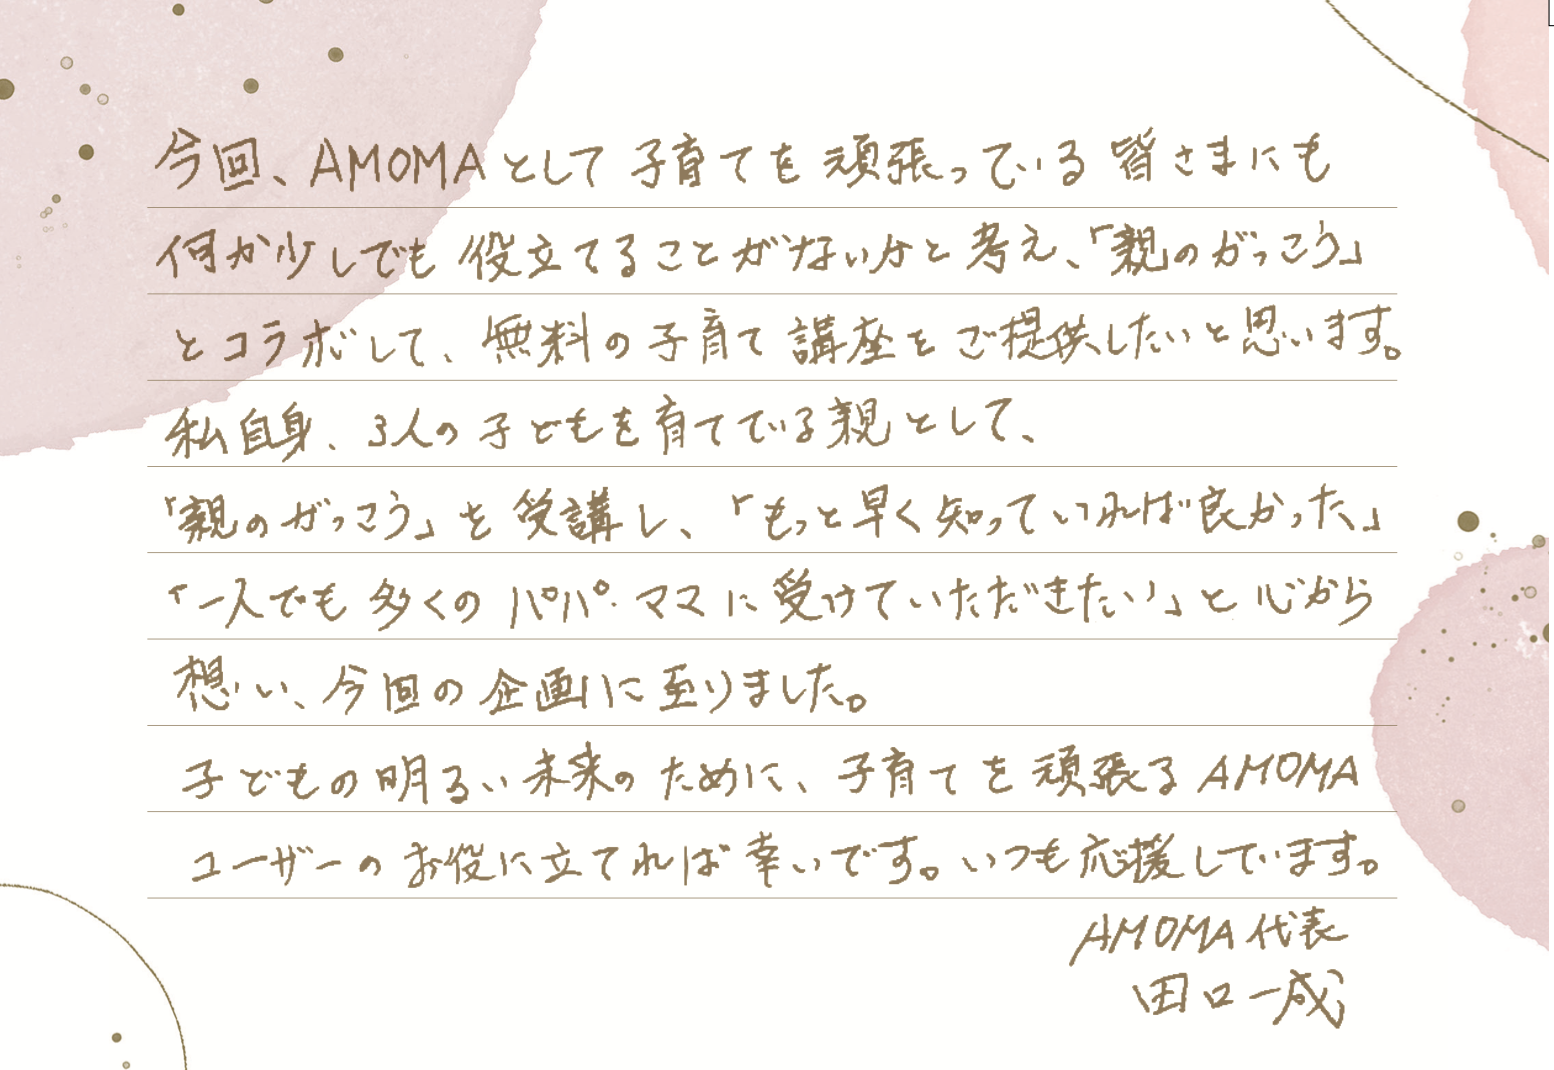 今回、AMOMAとして子育てを頑張っている皆さまにも
何か少しでも役立てることがないかと考え、「親のがっこう」
とコラボして、無料の子育て講座をご提供したいと思います。
私自身、3人の子どもを育てている親として、
「親のがっこう」を受講し、「もっと早く知っていれば良かった」
「一人でも多くのパパ・ママに受けていただきたい」と心から
想い、今回の企画に至りました。
子どもの明るい未来のために、子育てを頑張るAMOMA
ユーザーのお役に立てれば幸いです。いつも応援しています。
AMOMA代表
田口一成